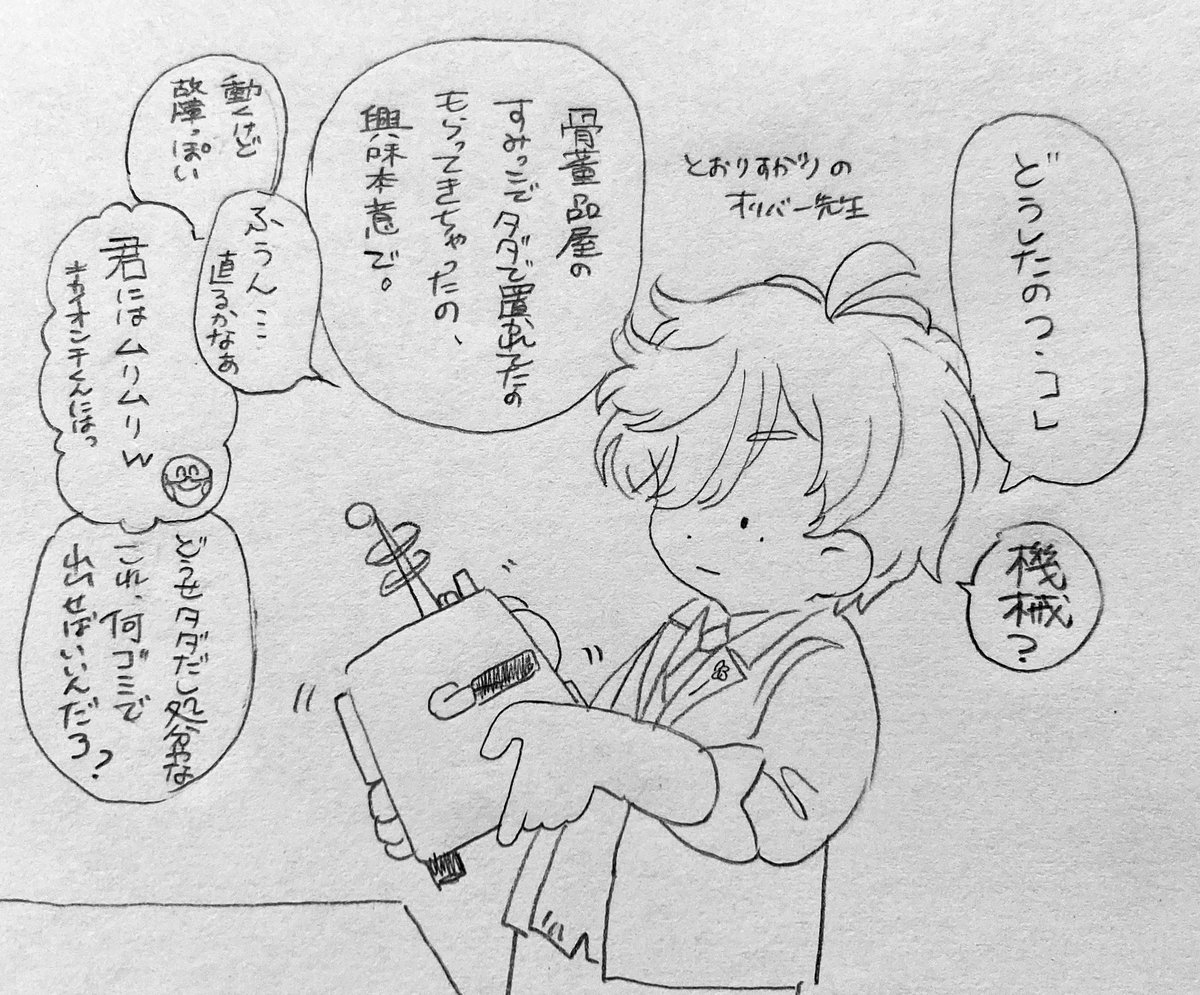 どうしたのっ、コレ
機械?
とおりすがりの
オリバー先生
骨董品屋の
すみっこでタダで置かれてたの
もらってきちゃったの、
興味本意で。
動くけど
故障っぽい
ふうん…
直るかなぁ
君にはムリムリw
キカイオンチくんにはっ
どうせタダだし処分かな
これ、何ゴミで
出せばいいんだろ?